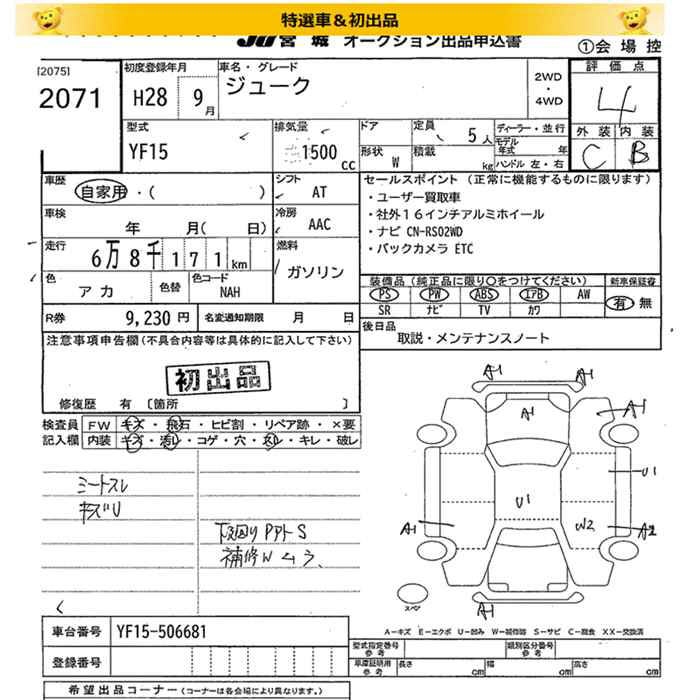 特選車＆初出品
JU宮城 オークション出品申込書
①会場控
[2075]
2071
初度登録年月
H28 9月
車名・グレード
ジューク
2WD・4WD
評価点
4
外装 内装
C B
型式
YF15
排気量
1500cc
ドア
形状 W
定員 5人
積載 kg
ディーラー・並行
モデル年式 年
ハンドル 左・右
車歴
自家用・( )
シフト
AT
車検
年 月( 日)
冷房
AAC
走行
6万8千171km
燃料
ガソリン
色
アカ
色替
色コード
NAH
R券 9,230円
名変通知期限 月 日
セールスポイント（正常に機能するものに限ります）
・ユーザー買取車
・社外１６インチアルミホイール
・ナビ CN-RS02WD
・バックカメラ ETC
装備品（純正品に限り○をつけてください）
新車保証書
PS PW ABS エアB AW
有 無
SR ナビ TV カワ
後日品
取説・メンテナンスノート
注意事項申告欄(不具合内容等は具体的に記入して下さい)
初出品
修復歴 有〔箇所 〕
検査員記入欄
FW キズ・飛石・ヒビ割・リペア跡・×要
内装 キズ・汚レ・コゲ・穴・スレ・キレ・破レ
シートスレ
キズU
下廻りPPトS
補修Wムラ
A1
A1
A1
A1
U1
U1
A1
W2
A2
A1
スペア
A－キズ E－エクボ U－凹み W－補修跡 S－サビ C－腐食 XX－交換済
車台番号 YF15-506681
登録番号
型式指定番号参考
類別区分番号参考
車庫証明用参考 長さ cm 幅 cm 高さ cm
希望出品コーナー(コーナーは各会場により異なります。)